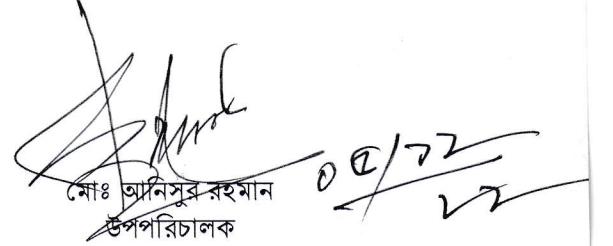 ০৫/১২
২২
মোঃ আনিসুর রহমান
উপপরিচালক